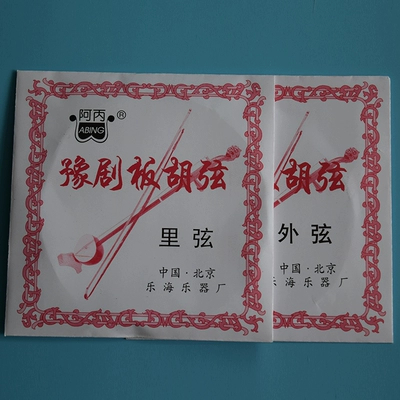 阿丙
ABING ®
豫剧板胡弦
里弦
中国·北京
乐海乐器厂
胡弦
外弦
中国·北京
乐海乐器厂